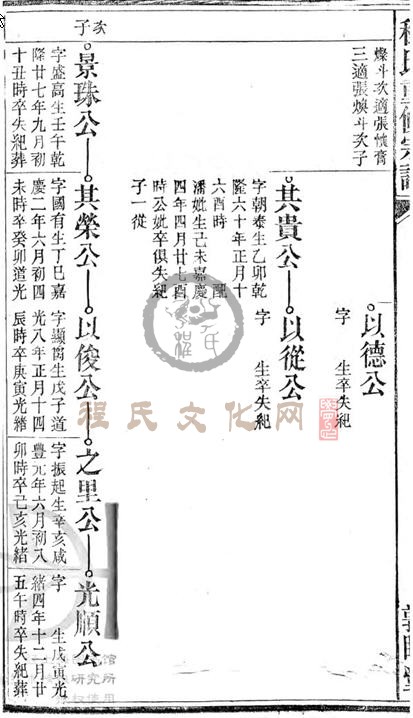 燦斗次適張懷膏
三適張煥斗次子
以德公
字　生卒失紀
其貴公
以從公
字朝泰生乙卯乾
隆六十年正月十
六酉時　配
潘妣生己未嘉慶
四年四月廿七酉
時公妣卒俱失紀
子一從
字　生卒失紀
次子
景珠公
其榮公
以俊公
之里公
光順公
字盛高生壬午乾
隆廿七年九月初
十丑時卒失紀葬
字國有生丁巳嘉
慶二年六月初四
未時卒癸卯道光
生戊子道
光八年正月十四
辰時卒庚寅光緒
字振起生辛亥咸
豐元年六月初八
卯時卒己亥光緒
字　生戊寅光
緒四年十二月廿
五午時卒失紀葬
程氏文化网